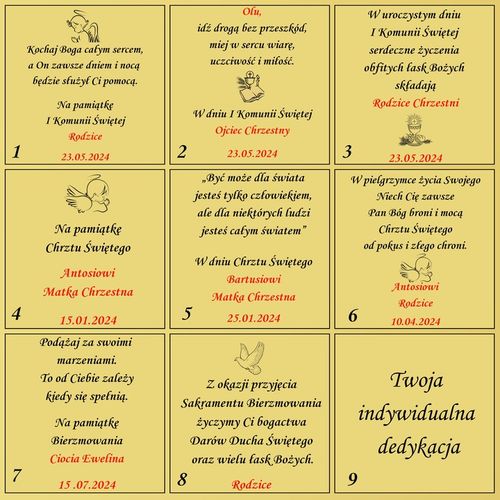 Kochaj Boga całym sercem,
a On zawsze dniem i nocą
będzie służył Ci pomocą.
Na pamiątkę
I Komunii Świętej
Rodzice
23.05.2024
1
Olu,
idź drogą bez przeszkód,
miej w sercu wiarę,
uczciwość i miłość.
W dniu I Komunii Świętej
Ojciec Chrzestny
23.05.2024
2
W uroczystym dniu
I Komunii Świętej
serdeczne życzenia
obfitych łask Bożych
składają
Rodzice Chrzestni
23.05.2024
3
Na pamiątkę
Chrztu Świętego
Antosiowi
Matka Chrzestna
15.01.2024
4
„Być może dla świata
jesteś tylko człowiekiem,
ale dla niektórych ludzi
jesteś całym światem”
W dniu Chrztu Świętego
Bartusiowi
Matka Chrzestna
25.01.2024
5
W pielgrzymce życia Swojego
Niech Cię zawsze
Pan Bóg broni i mocą
Chrztu Świętego
od pokus i złego chroni.
Antosiowi
Rodzice
10.04.2024
6
Podążaj za swoimi
marzeniami.
To od Ciebie zależy
kiedy się spełnią.
Na pamiątkę
Bierzmowania
Ciocia Ewelina
15 .07.2024
7
Z okazji przyjęcia
Sakramentu Bierzmowania
życzymy Ci bogactwa
Darów Ducha Świętego
oraz wielu łask Bożych.
Rodzice
8
Twoja
indywidualna
dedykacja
9